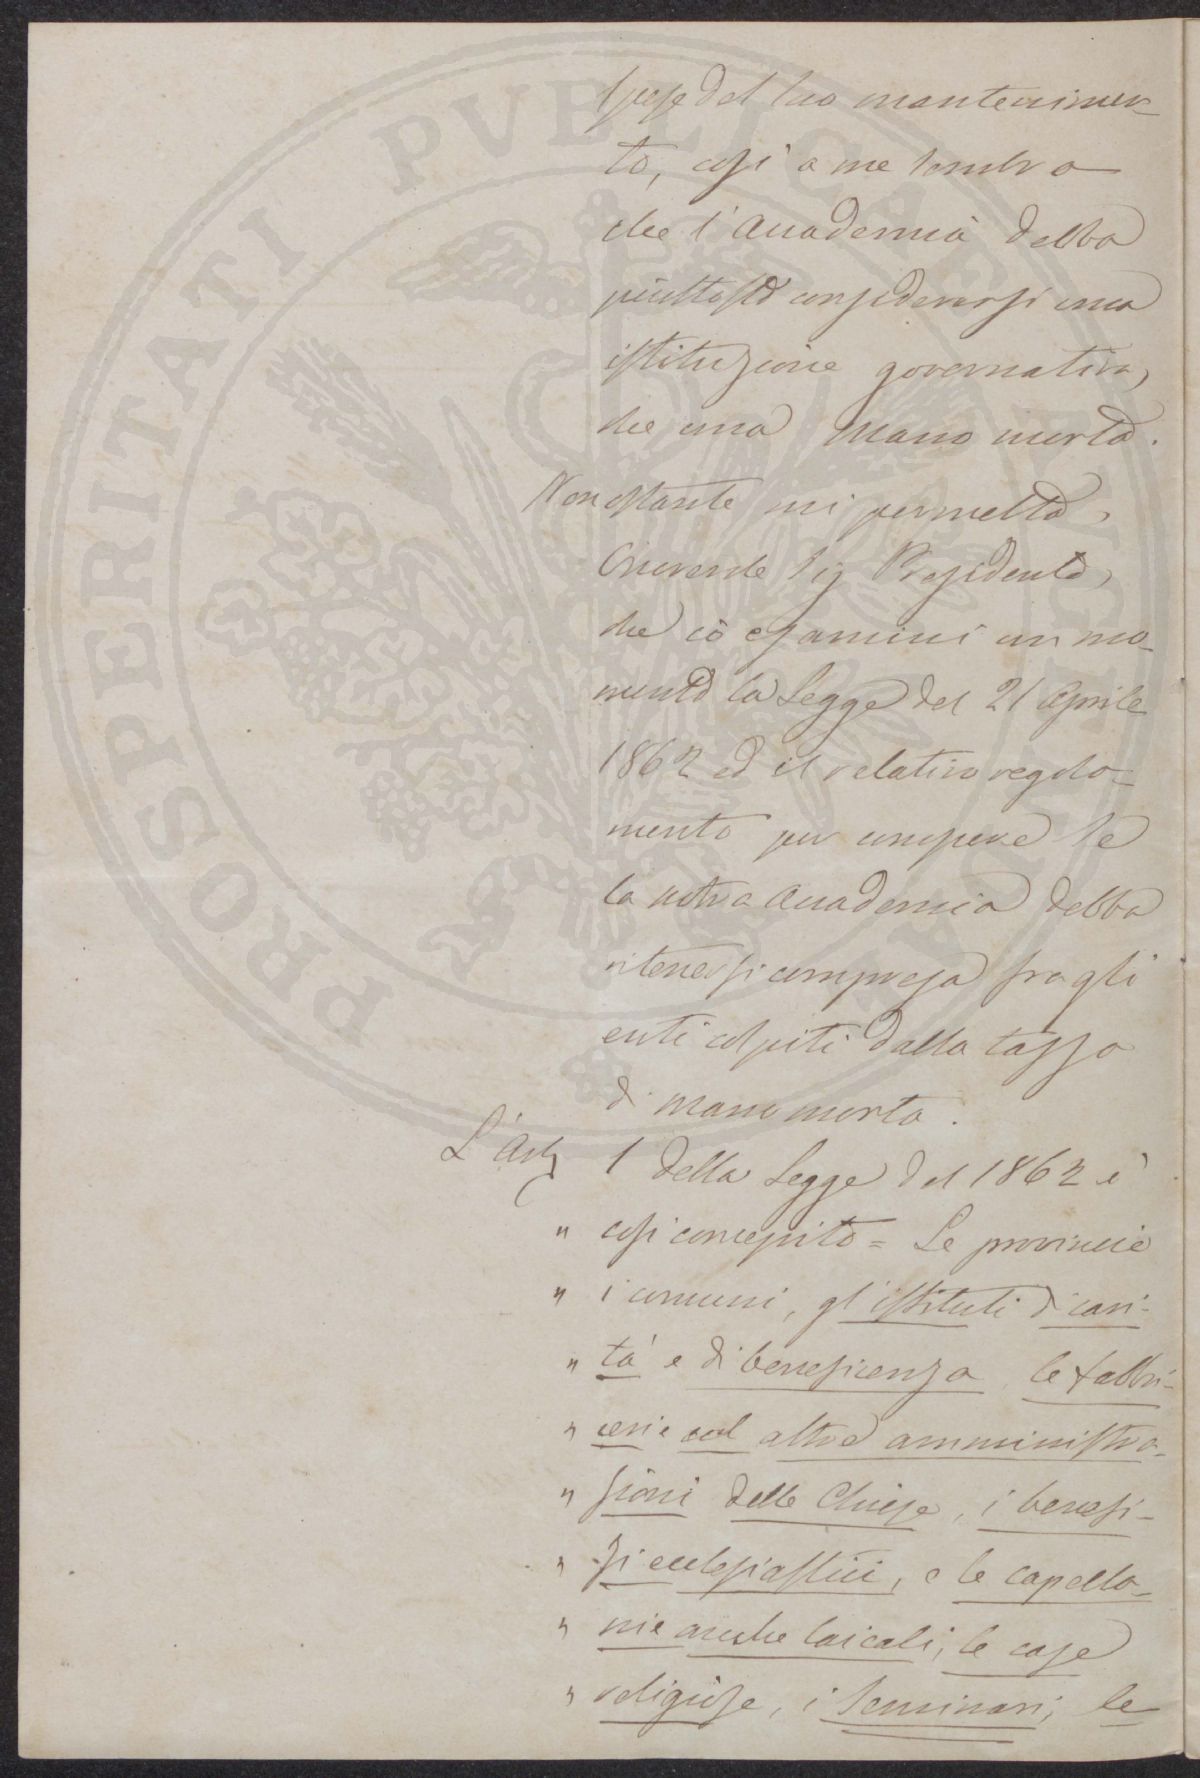 spese del suo mantenimen-
to, così a me sembra
che l'Accademia debba
piuttosto considerarsi una
istituzione governativa,
che una mano morta.
Nonostante mi permetta,
Onorevole Sig Presidente,
che io esamini un mo-
mento la Legge del 21 Aprile
1862 ed il relativo regola-
mento per conoscere se
la nostra Accademia debba
ritenersi compresa fra gli
enti colpiti dalla tassa
di mano morta.
L'Art 1 della Legge del 1862 è
" così concepito = Le provincie
" i comuni, gl'istituti di cari-
" tà e di beneficenza le fabbri-
" cerie ed altre amministra-
" zioni delle Chiese, i benefi-
" zi ecclesiastici, e le capella-
" nie anche laicali, le case
" religiose, i seminari, le
PROSPERITATI PVBLICAE AVGENDAE